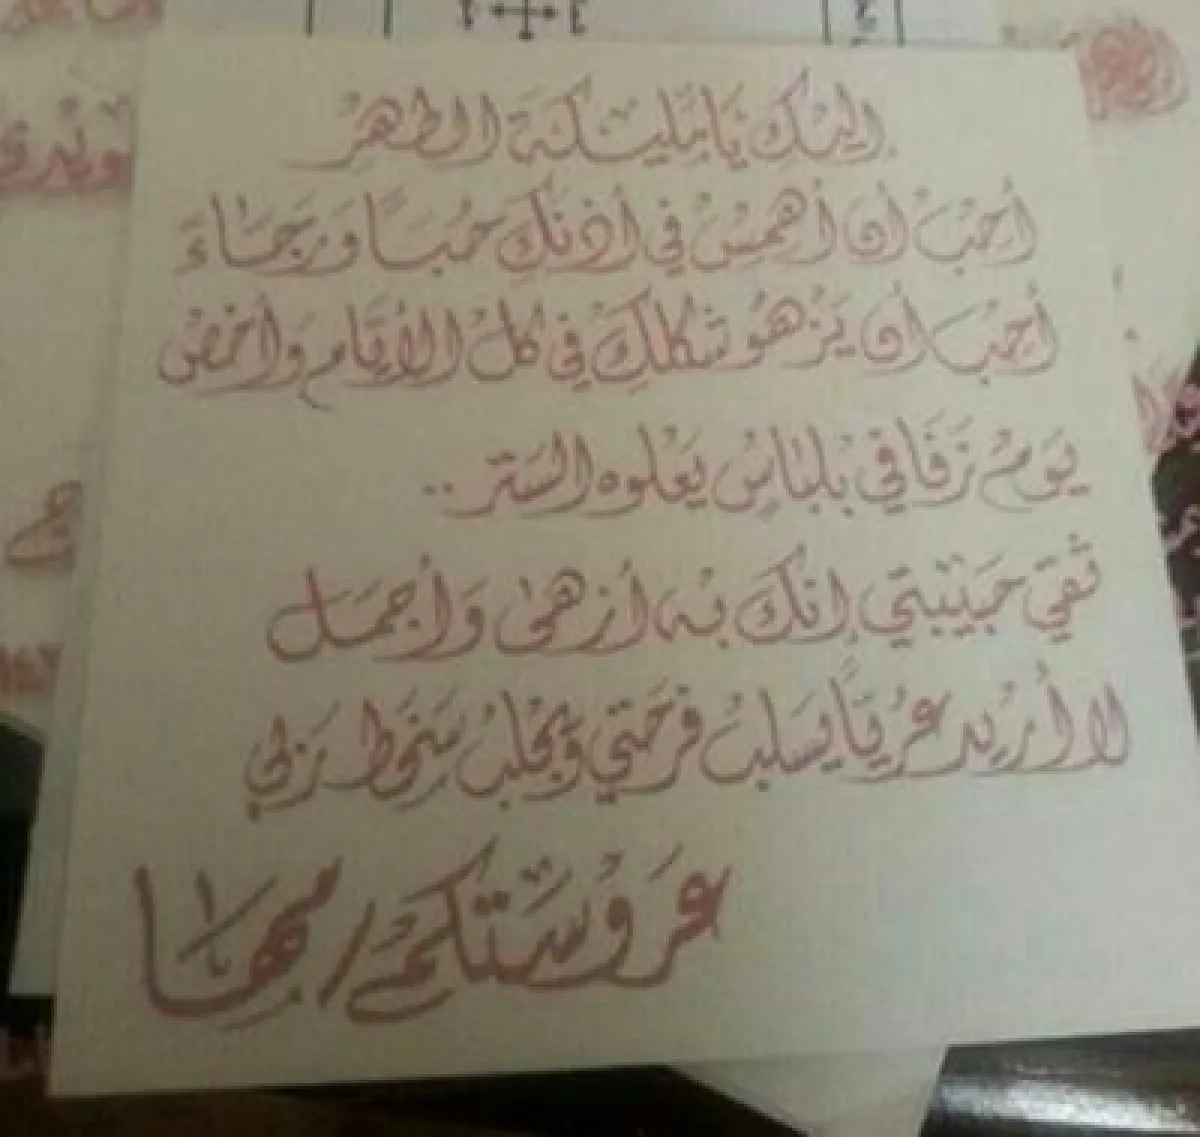 إليك يا مليكة الطهر
أُحبُّ أن أهمسَ في أذنكِ حُبًّا وَرَجَاءَ
أُحبُّ أن يَزهُو شكلكِ في كل الأيَّام وَأخصُّ
يَومُ زَفَافي بلباسٍ يَعْلوه السَتر..
ثقي حَبيبتي إنكَ به أزهى وَأجمَل
لا أُريد عُريًا يَسلبُ فرحَتي وَيجلبُ سَخط رَبي
عَرُوسَتكمْ / مها